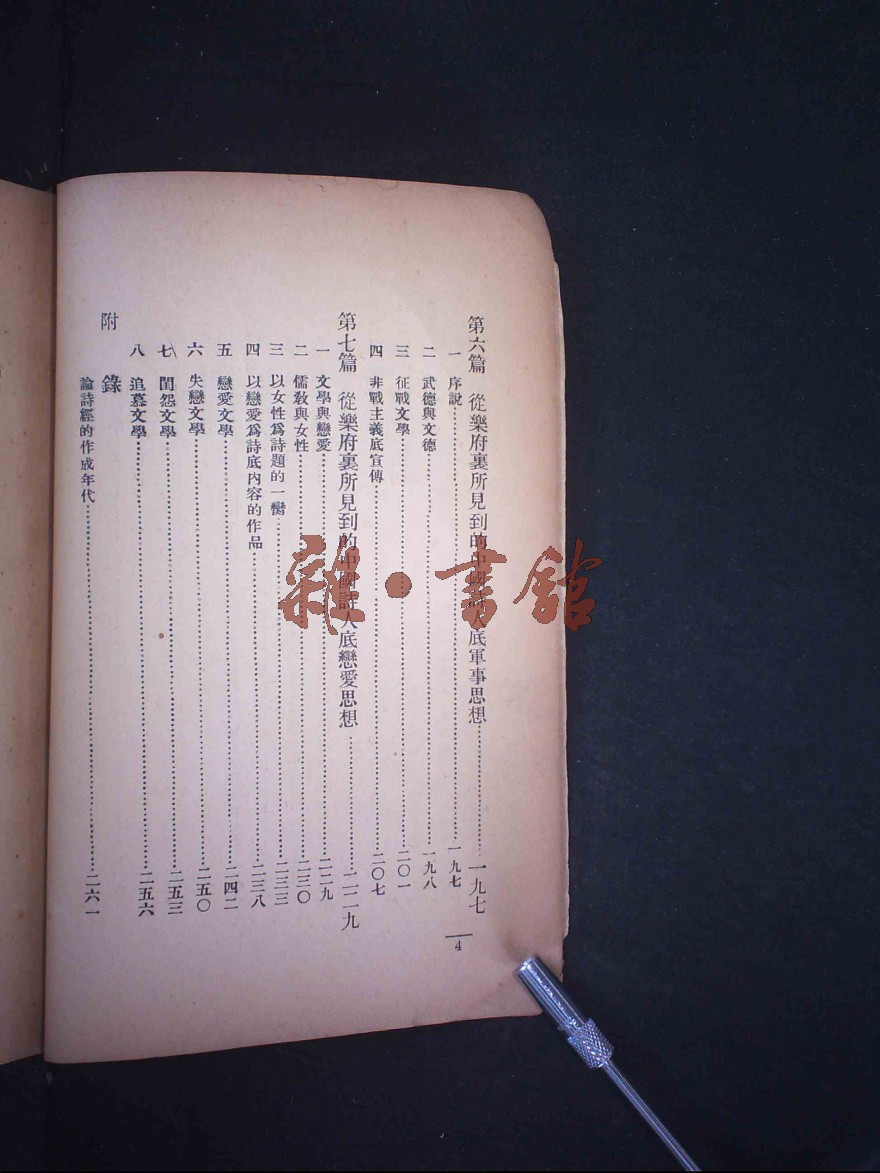 第六篇 從樂府裏所見到的中國詩人底軍事思想……一九七
一 序說……一九七
二 武德與文德……一九八
三 征戰文學……二〇一
四 非戰主義底宣傳……二〇七
第七篇 從樂府裏所見到的中國詩人底戀愛思想……二二九
一 文學與戀愛……二二九
二 儒教與女性……二三〇
三 以女性爲詩題的一臠……二三三
四 以戀愛爲詩底內容的作品……二三八
五 戀愛文學……二四二
六 失戀文學……二五〇
七 閨怨文學……二五三
八 追慕文學……二五六
附錄
論詩經的作成年代……二六一
4
雜·書館